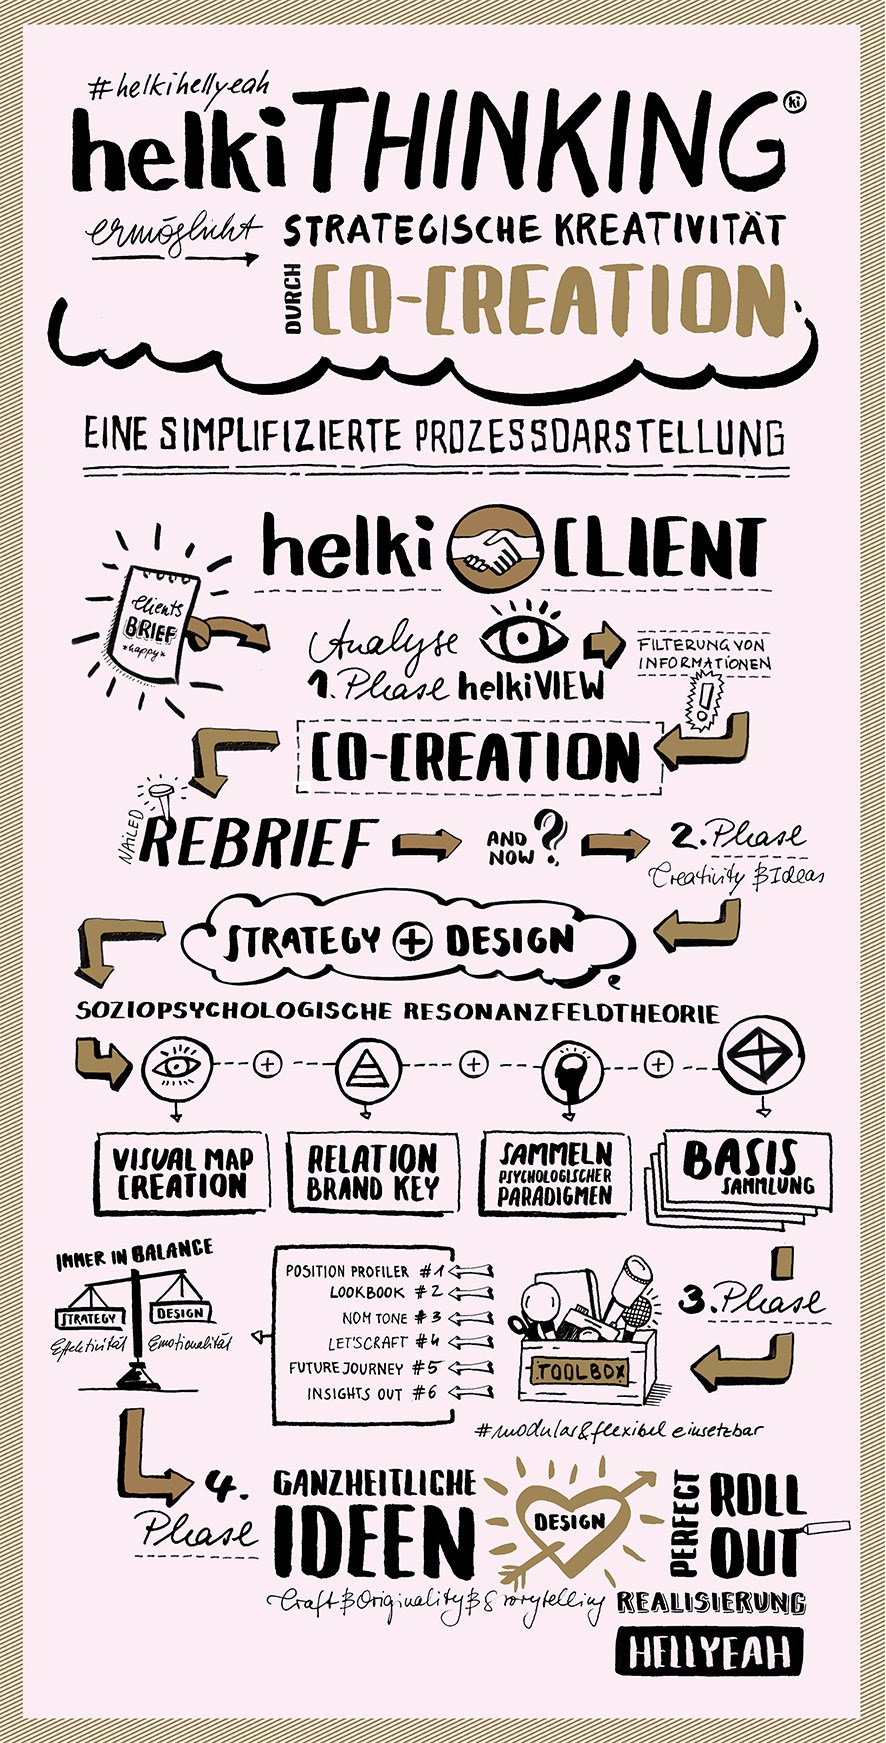 #helkihellyeah
helkiTHINKING
ki
ermöglicht STRATEGISCHE KREATIVITÄT
DURCH CO-CREATION
EINE SIMPLIFIZIERTE PROZESSDARSTELLUNG
helki CLIENT
Clients
BRIEF
*happy*
Analyse
FILTERUNG VON
INFORMATIONEN
1. Phase helkiVIEW
!
CO-CREATION
NAILED
REBRIEF
AND
NOW ?
2. Phase
Creativity & Ideas
STRATEGY + DESIGN
SOZIOPSYCHOLOGISCHE RESONANZFELDTHEORIE
+ + +
VISUAL MAP
CREATION
RELATION
BRAND KEY
SAMMELN
PSYCHOLOGISCHER
PARADIGMEN
BASIS
SAMMLUNG
IMMER IN BALANCE
STRATEGY DESIGN
Effektivität Emotionalität
POSITION PROFILER #1
LOOKBOOK #2
NOM TONE #3
LET'SCRAFT #4
FUTURE JOURNEY #5
INSIGHTS OUT #6
TOOLBOX
3. Phase
#modular&flexibel einsetzbar
4.
Phase
GANZHEITLICHE
IDEEN
DESIGN
PERFECT
ROLL
OUT
Craft & Originality & Storytelling
REALISIERUNG
HELLYEAH